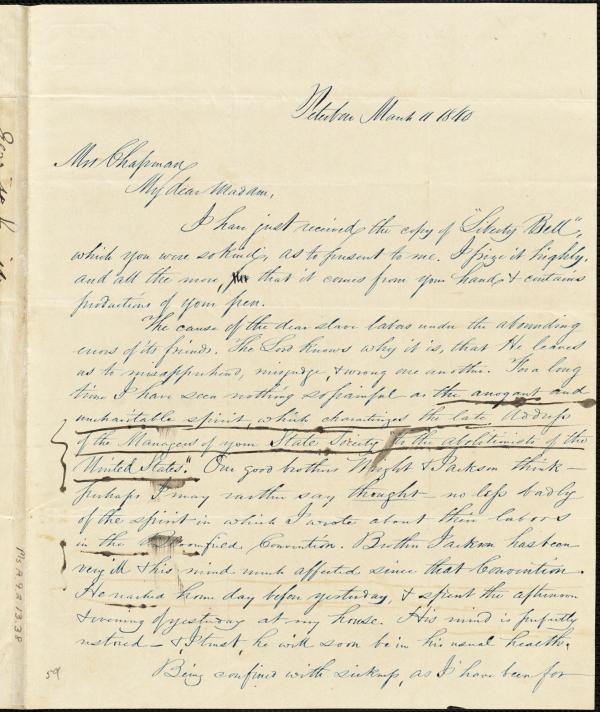 Peterboro March 11 1840
Mrs Chapman,
My dear Madam,
I have just received the copy of "Liberty Bell",
which you were so kind, as to present to me. I prize it highly,
and all the more, that it comes from your hand, & contains
productions of your pen.
The cause of the dear slave labors under the abounding
errors of its friends. The Lord knows why it is, that He leaves
us to misapprehend, misjudge, & wrong one another. For a long
time I have seen nothing so painful as the arrogant and
uncharitable spirit, which characterizes the late Address
of the Managers of your State Society to the abolitionists of the
United States". Our good brothers Wright & Jackson think—
perhaps I may rather say thought— no less badly
of the spirit in which I wrote about their labors
in the Convention. Brother Jackson has been
very ill & his mind much affected since that Convention.
He reached home day before yesterday, & spent the afternoon
& evening of yesterday at my house. His mind is perfectly
restored— & I trust, he will soon be in his usual health.
Being confined with sickness, as I have been for
59
Ms.A.9.2.13.38